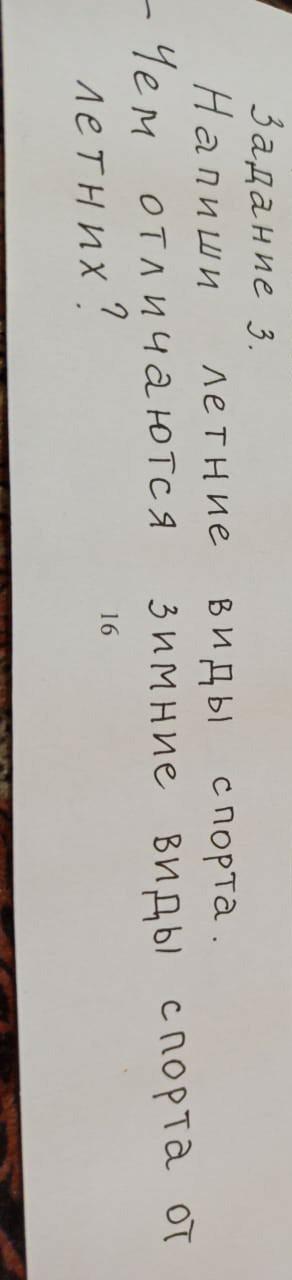 Задание 3.
Напиши летние виды спорта.
- Чем отличаются зимние виды спорта от
летних?
16